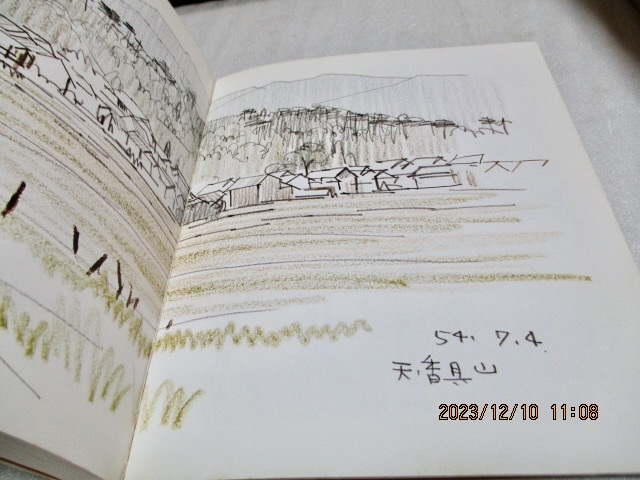 54. 7.4.
天香具山
2023/12/10 11:08